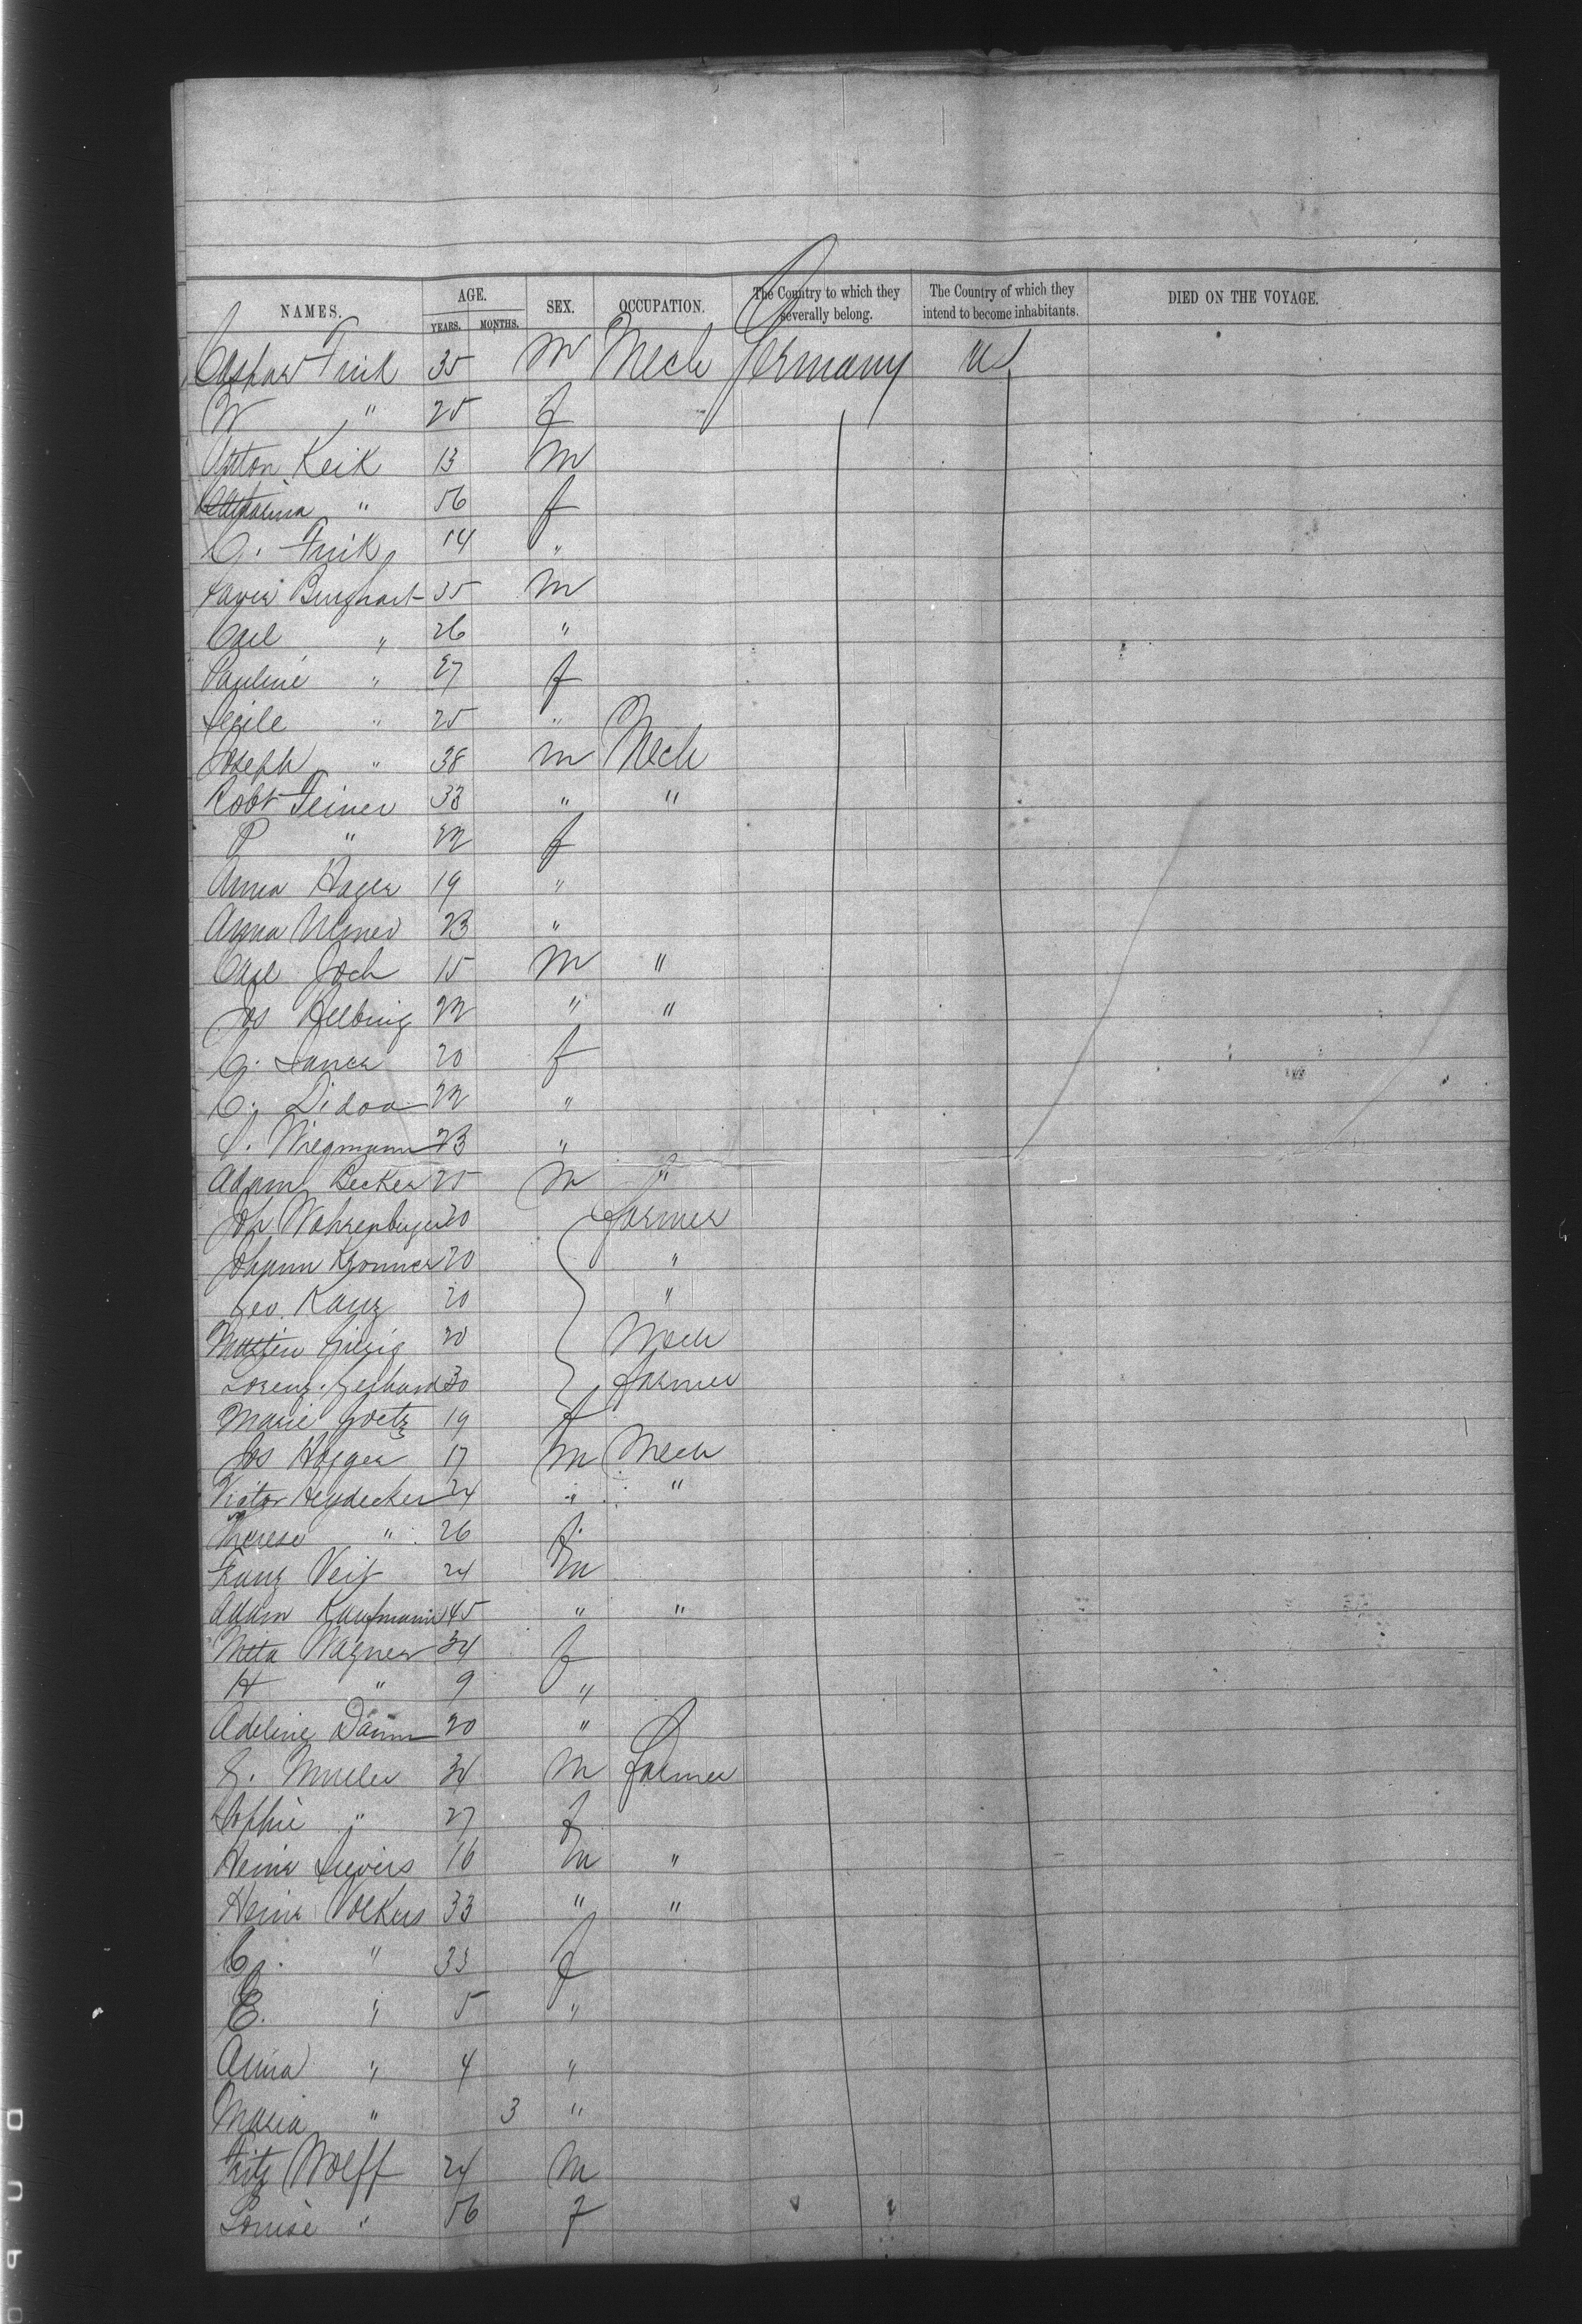 NAMES. AGE. SEX. OCCUPATION. The Country to which they severally belong. The Country of which they intend to become inhabitants. DIED ON THE VOYAGE.
YEARS. MONTHS.
Frick 35 m Mech Germany US
W " 25 f
Anton Keik 13 m
" 56 f
C. Frick 14 "
Burghart 35 m
Carl " 26 "
Pauline " 27 f
" 25 "
Joseph " 38 m Mech
Robt Feiner 33 " "
P " 22 f
Anna Hager 19 "
Anna 23 "
Carl Joch 15 m "
Jos Helbing 22 " "
20 f
C. Didoa 22 "
Wiegmann 23 "
Adam Becker 25 m "
Joh Wahrenberger 20 farmer
Johann Kronner 20 "
Geo. Kanz 20 "
Martin 20 Mech
Lorenz Gerhard 30 farmer
Marie Goetz 19 f
Jos Hagger 17 m Mech
Victor Heydecker 24 " "
Therese " 26 f
Franz Veit 24 m
Adam Kaufmann 45 " "
Meta Wagner 34 f
H " 9 "
Adeline Damm 20 "
Muller 34 m farmer
Sophie " 27 f
Heinr Sievers 16 m "
Heinr Volkers 33 " "
C. " 33 f
E. " 5 "
Anna " 4 "
Maria " 3 "
Fritz Wolff 24 m
Louise " 56 f